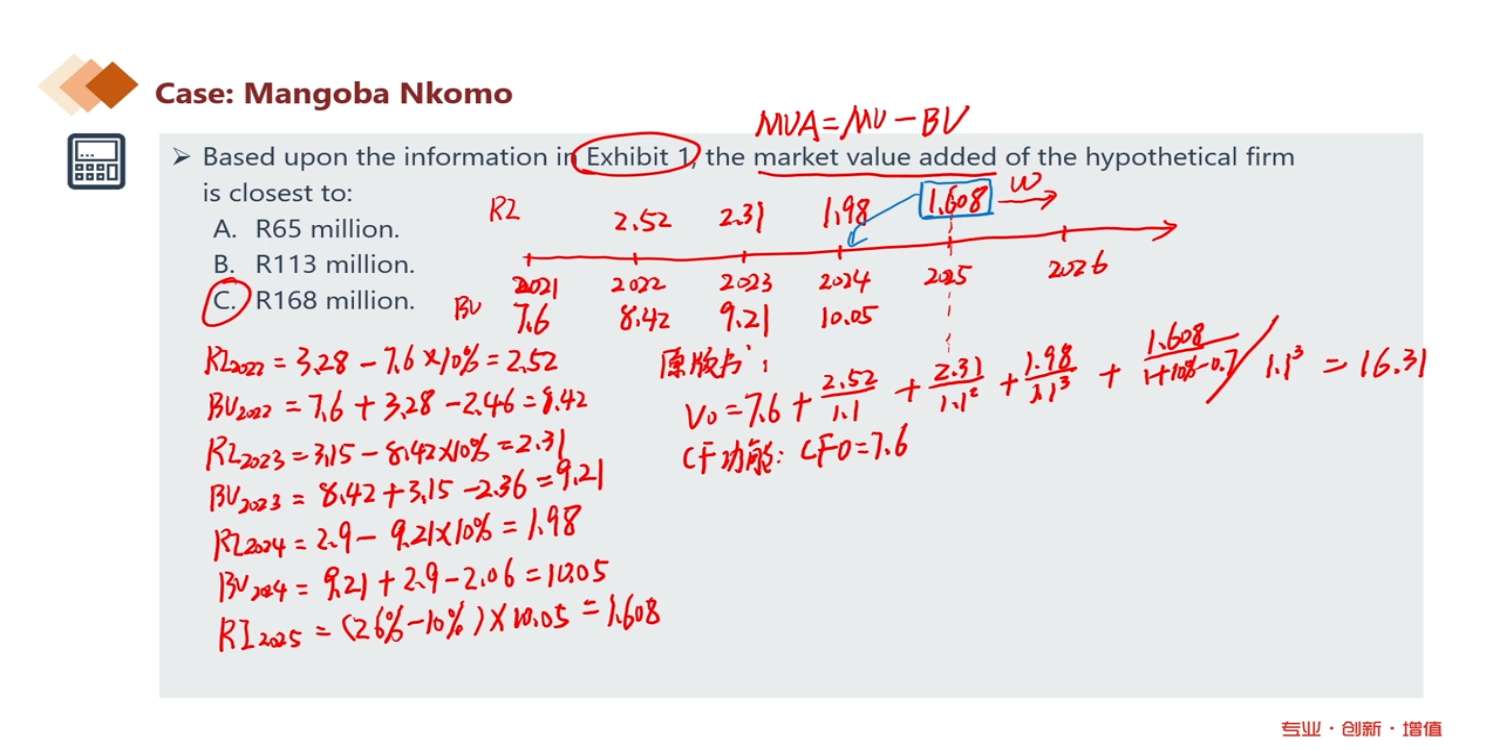 Case: Mangoba Nkomo
MVA=MV-BV
➢ Based upon the information in Exhibit 1, the market value added of the hypothetical firm
is closest to:
A. R65 million.
B. R113 million.
C. R168 million.
RI 2.52 2.31 1.98 1.608 ω
2021 2022 2023 2024 2025 2026
BV 7.6 8.42 9.21 10.05
RI2022 = 3.28 - 7.6×10% = 2.52
BV2022 = 7.6 + 3.28 - 2.46 = 8.42
RI2023 = 3.15 - 8.42×10% = 2.31
BV2023 = 8.42 + 3.15 - 2.36 = 9.21
RI2024 = 2.9 - 9.21×10% = 1.98
BV2024 = 9.21 + 2.9 - 2.06 = 10.05
RI2025 = (26% - 10%) × 10.05 = 1.608
原版书:
V0 = 7.6 + 2.52/1.1 + 2.31/1.1² + 1.98/1.1³ + 1.608/1+10%-0.7 / 1.1³ = 16.31
CF功能: CF0=7.6
专业·创新·增值